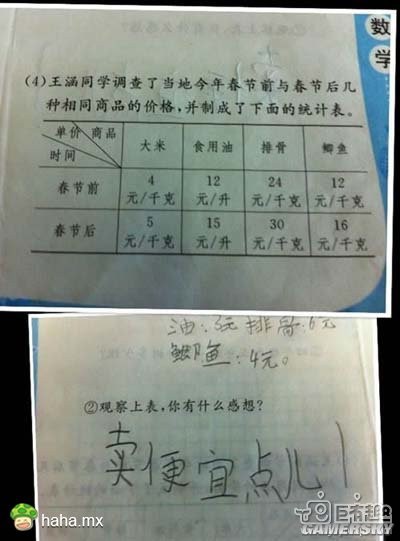 数
学
(4)王涵同学调查了当地今年春节前与春节后几
种相同商品的价格,并制成了下面的统计表。
单价 商品
时间
大米 食用油 排骨 鲫鱼
春节前
4 12 24 12
元/千克 元/升 元/千克 元/千克
春节后
5 15 30 16
元/千克 元/升 元/千克 元/千克
油:3元 排骨:6元
鲫鱼:4元。
②观察上表,你有什么感想?
卖便宜点儿!
haha.mx
GAMERSKY